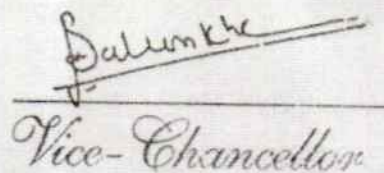 Salunkhe
Vice-Chancellor